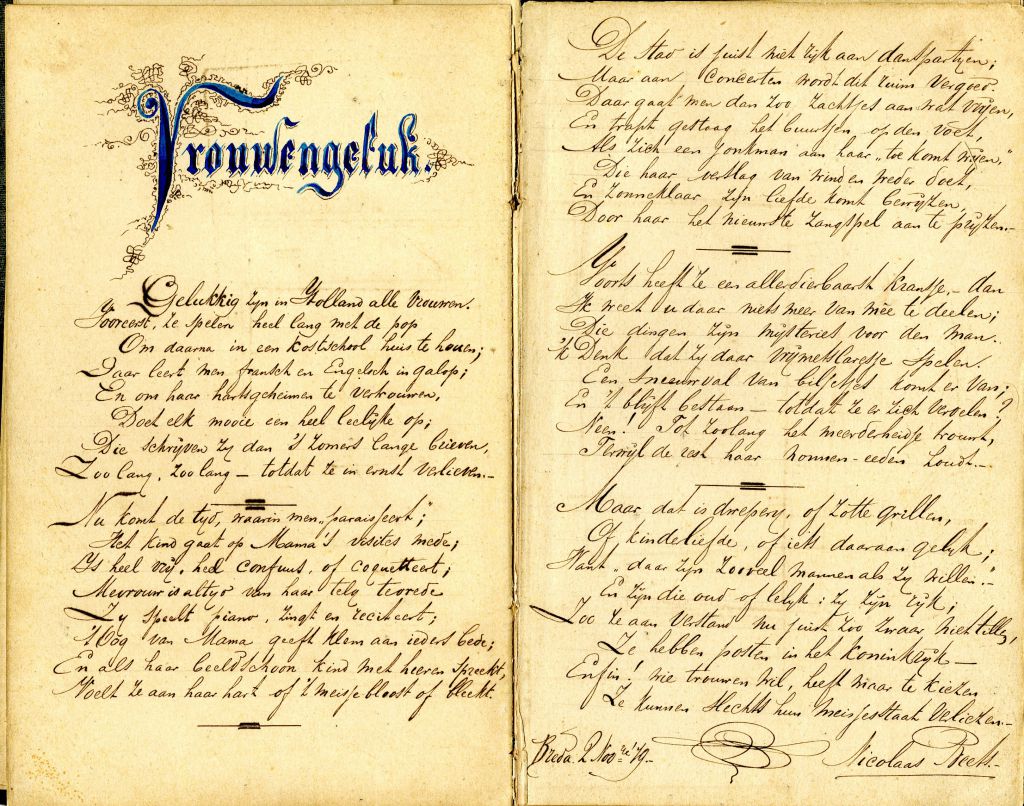 Vrouwengeluk.
Gelukkig zyn in Holland alle vrouwen.
Vooreerst, ze spelen heel lang met de pop
Om daarna in een kostschool huis te houen;
Daar leert men fransch en Engelsch in galop;
En om haar hartsgeheimen te vertrouwen,
Doet elk mooie een heel leelyke op;
Die schryven zy dan 's Zomers lange brieven,
Zoo lang, zoo lang — totdat ze in ernst verlieven.—
Nu komt de tyd, waarin men „paraisseert";
Het kind gaat op Mama's visites mede;
Is heel vry, heel confuus, of coquetteert;
Mevrouw is altyd van haar telg tevrede
Zy speelt piano, zingt en reciteert;
't Oog van Mama geeft klem aan ieders bede;
En als haar beeldschoon kind met heeren spreekt,
Voelt ze aan haar hart of 't meisje bloost of bleekt.
De stad is juist niet ryk aan danspartyen;
Maar aan Concerten wordt dit ruim vergoed.
Daar gaat men dan zoo zachtjes aan wat vryen,
En trapt gestaag het buurtjen op den voet,
Als zich een jonkman aan haar „toe komt wyen,"
Die haar verslag van wind en weder doet,
En zonneklaar zyn liefde komt bewyzen,
Door haar het nieuwste zangspel aan te pryzen.—
Voorts heeft ze een allerdierbaarst kransje, — dan
Ik weet u daar niets meer van mêe te deelen;
Die dingen zyn mysteries voor den man.
'k Denk dat zy daar vrymetselaresje spelen.
Een sneeuwval van biljetjes komt er van;
En 't blyft bestaan — totdat ze er zich vervelen?
Neen! Tot zoolang het meerderheidje trouwt,
Terwyl de rest haar nonnen-eeden houdt.—
Maar, dat is dwepery, of zotte grillen,
Of kinderliefde, of iets daaraan gelyk;
Want „daar zyn zooveel mannen als zy willen."—
En zyn die oud of lelyk: zy zyn ryk;
Zoo ze aan verstand nu juist zoo zwaar niet tillen,
Ze hebben posten in het koninkryk —
Enfin! wie trouwen wil, heeft maar te kiezen
Ze kunnen slechts hun meisjesstaat verliezen.—
Breda. 2 Nov. '79.—
Nicolaas Beets.—